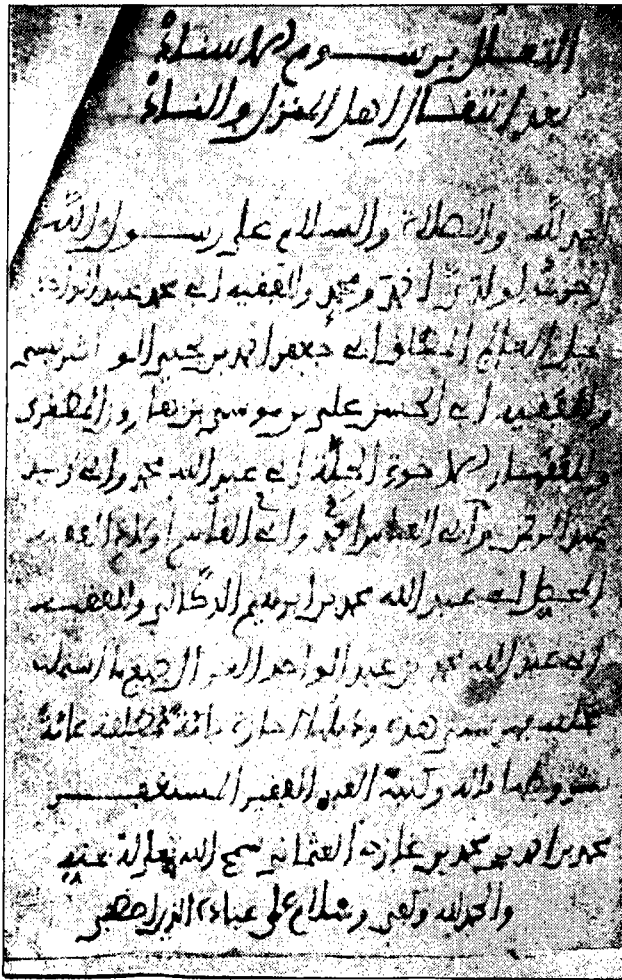 التعلل برسوم الاسناد
بعد انتقال اهل المنزل والناد
الحمد لله والصلاة والسلام على رسول الله
اجزت لولدي أحمد ومحمد والفقيه ابي محمد عبد
العالم ابي جعفر احمد بن يحيى الونشريسي
والفقيه ابي الحسن علي بن موسى بن هارون المطغري
والفقهاء الاخوة الجلة ابي عبد الله محمد وابي زيد
عبد الرحمن وابي العباس احمد وابي القاسم أولاد الفقيه
ابي عبد الله محمد بن ابرهيم الدكالي والفقيه
ابي عبد الله محمد بن عبد الواحد جميع ما اشتملت
عليه فهرستي هذه اجازة تامة مطلقة عامة
بشروطها وكتبه العبد الفقير المستغفر
محمد بن احمد بن محمد بن غازي العثماني سمح الله تعالى له بمنه
والحمد لله وكفى وسلام على عباده الذين اصطفى